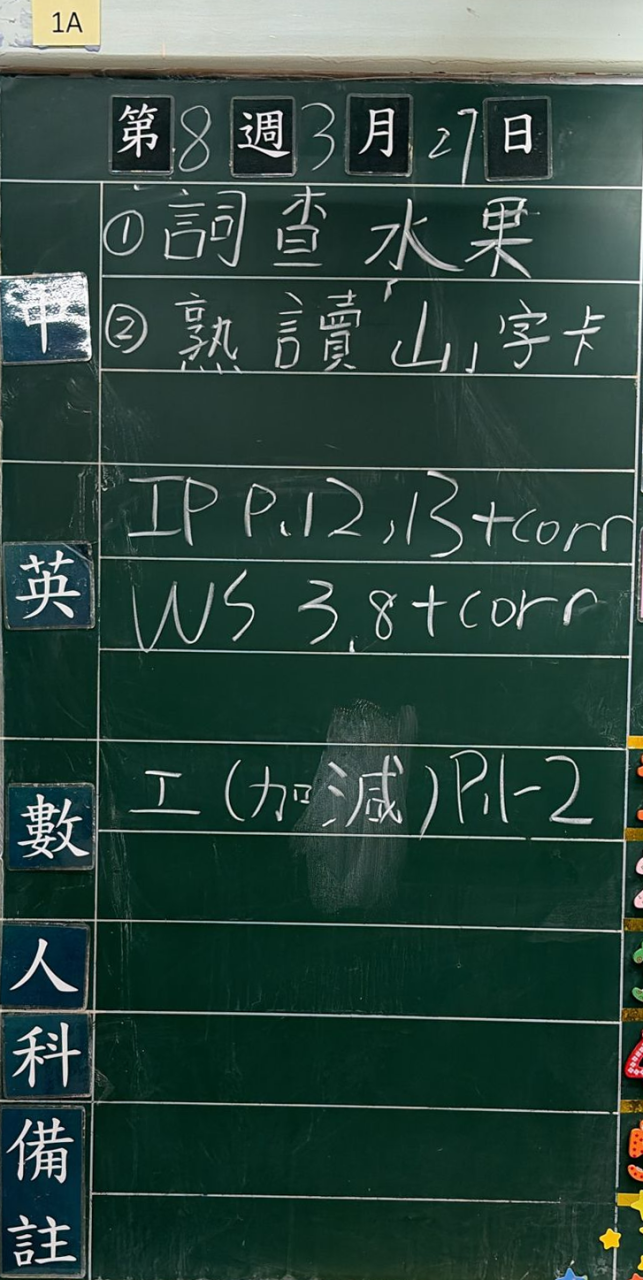 1A
第8週3月27日
中
①詞查水果
②熟讀山,,字卡
英
IP P.12,13+corr
WS 3.8+corr
數
工(加減)P.1-2
人
科
備
註